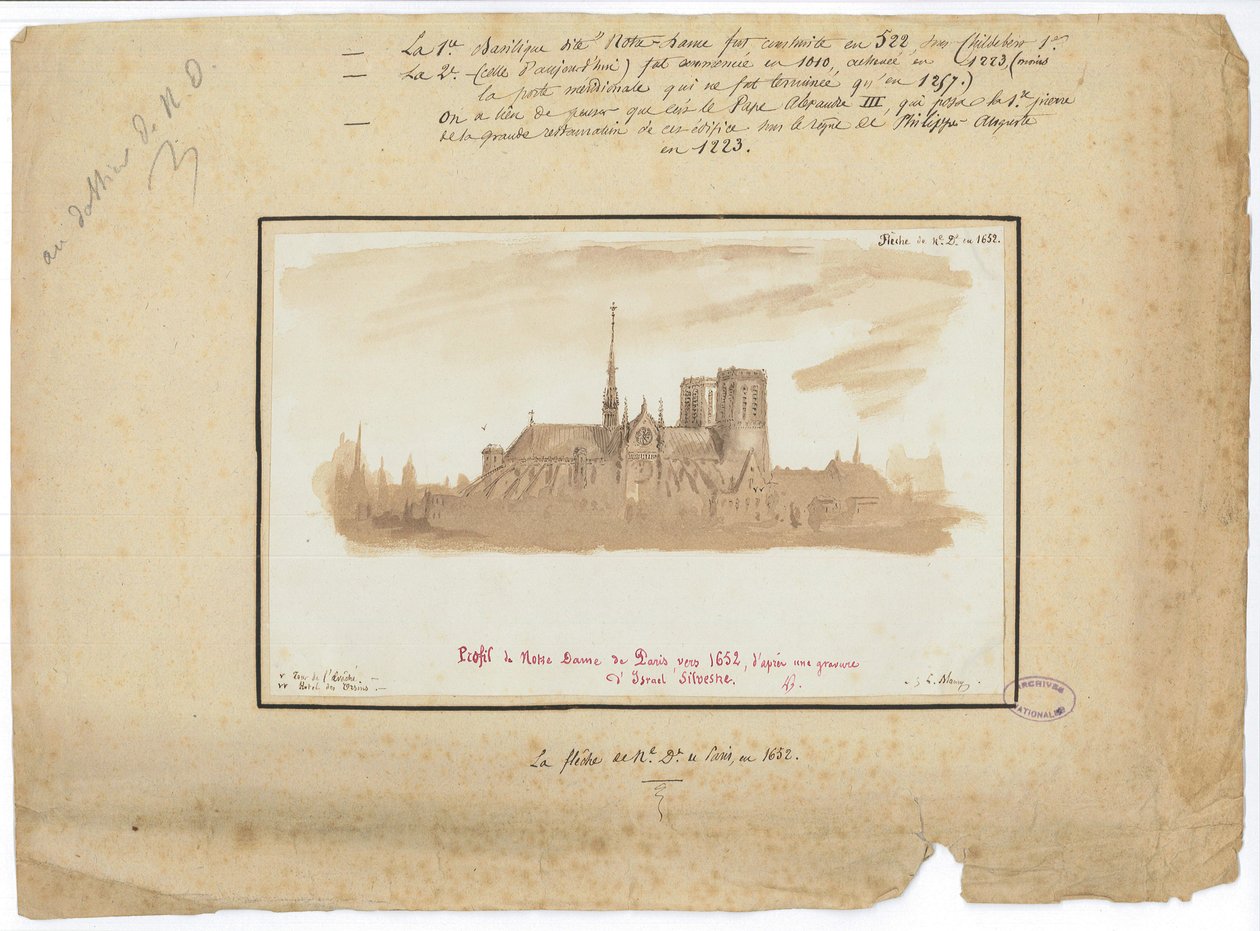 — La 1re Basilique dite Notre-Dame fut construite en 522, sous Childebert 1er
— La 2e (celle d'aujourd'hui) fut commencée en 1010, achevée en 1223, (moins
la porte méridionale qui ne fut terminée qu'en 1257.)
— On a lieu de penser que c'est le Pape Alexandre III, qui posa la 1re pierre
de la grande restauration de cet édifice sous le règne de Philippe-Auguste
en 1223.
au dossier de N D.
Flèche de Ne. De. en 1652.
Profil de Notre Dame de Paris, vers 1652, d'après une gravure
d'Israel Silvestre.
v Tour de l'Evêché. —
vv Hotel des Ursins. —
ARCHIVES
NATIONALES
La flêche de Ne. De. de Paris, en 1652.